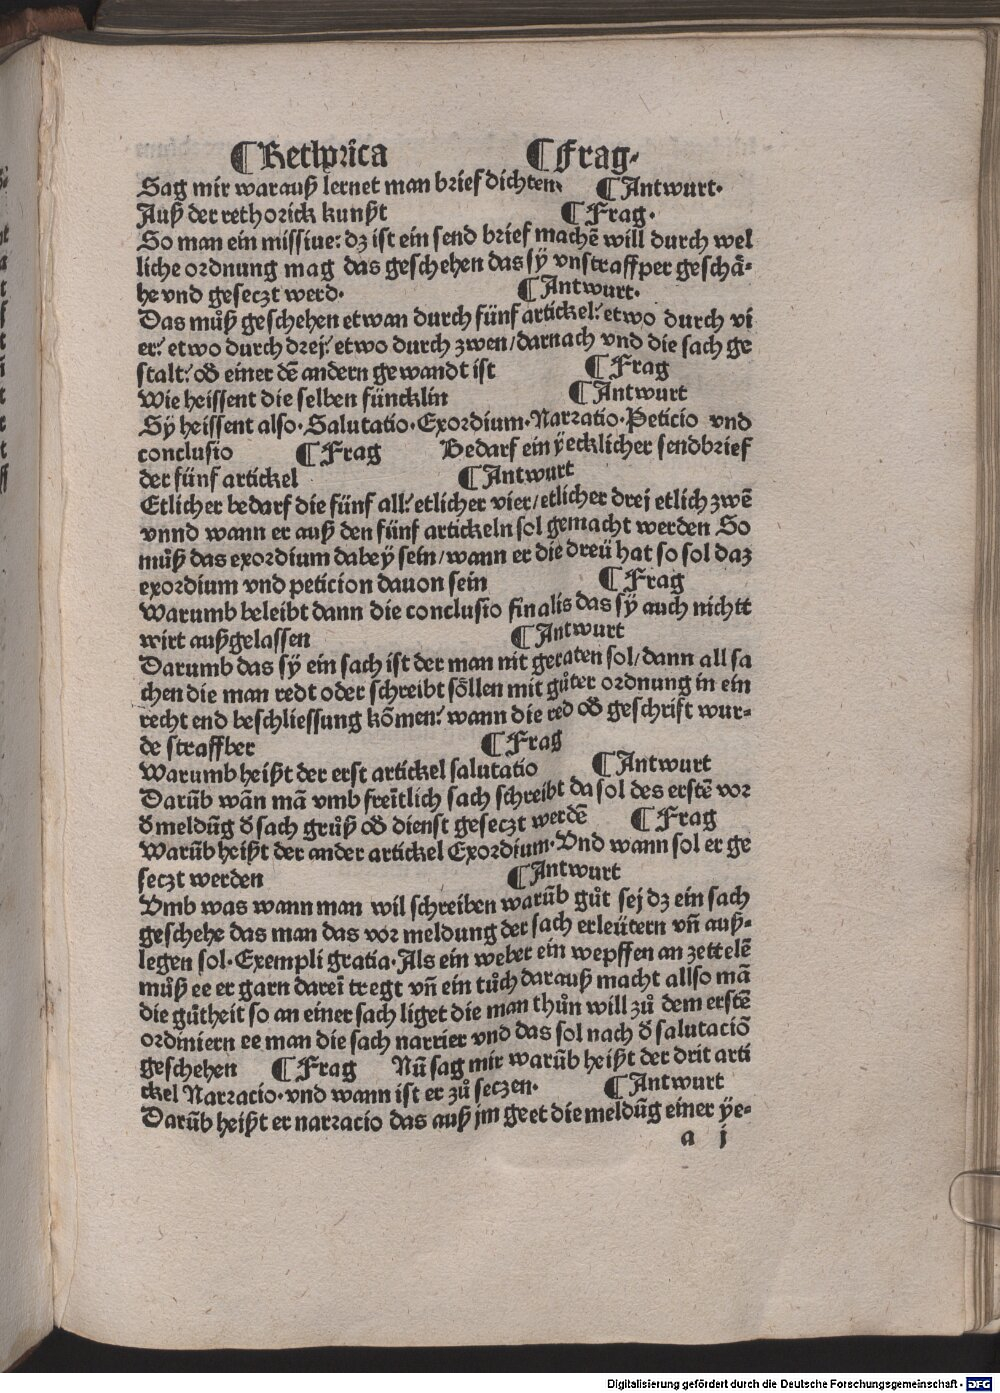 ¶Rethorica ¶Frag.
Sag mir warauß lernet man brief dichten. ¶Antwurt.
Auß der rethorick kunst ¶Frag.
So man ein missiue: dz ist ein send brief machẽ will durch wel
liche ordnung mag das geschehen das sÿ vnstraffper geschå-
he vnd geseczt werd. ¶Antwurt.
Das můß geschehen etwan durch fünf artickel: etwo durch vi
er: etwo durch drej: etwo durch zwen/darnach vnd die sach ge
stalt: od̕ einer dẽ andern gewandt ist ¶Frag
Wie heissent die selben füncklin ¶Antwurt
Sÿ heissent also. Salutatio. Exordium. Narratio. Peticio vnd
conclusio ¶Frag Bedarf ein ÿecklicher sendbrief
der fünf artickel ¶Antwurt
Etlicher bedarf die fünf all: etlicher vier/etlicher drej etlich zwẽ
vnnd wann er auß den fünf artickeln sol gemacht werden So
můß das exordium dabeÿ sein/wann er die dreü hat so sol daz
exordium vnd peticion dauon sein ¶Frag
Warumb beleibt dann die conclusio finalis das sÿ auch nichtt
wirt außgelassen ¶Antwurt
Darumb das sÿ ein sach ist der man nit geraten sol/dann all sa
chen die man redt oder schreibt söllen mit gůter ordnung in ein
recht end beschliessung kõmen: wann die red od̕ geschrift wur-
de straffber ¶Frag
Warumb heißt der erst artickel salutatio ¶Antwurt
Darũb wãn mã vmb freĩtlich sach schreibt da sol des erstẽ vor
d̕ meldũg d̕ sach grůß od̕ dienst geseczt werdẽ ¶Frag
Warũb heißt der ander artickel Exordium. Vnd wann sol er ge
seczt werden ¶Antwurt
Vmb was wann man wil schreiben warũb gůt sej dz ein sach
geschehe das man das vor meldung der sach erleütern vñ auß-
legen sol. Exempli gratia. Als ein weber ein wepffen an zettelẽ
můß ee er garn dareĩ tregt vñ ein tůch darauß macht allso mã
die gůtheit so an einer sach liget die man thůn will zů dem erstẽ
ordiniern ee man die sach narrier vnd das sol nach d̕ salutaciõ
geschehen ¶Frag Nũ sag mir warũb heißt der drit arti
ckel Narracio. vnd wann ist er zů seczen. ¶Antwurt
Darũb heißt er narracio das auß jm geet die meldũg einer ÿe-
a j
Digitalisierung gefördert durch die Deutsche Forschungsgemeinschaft - DFG